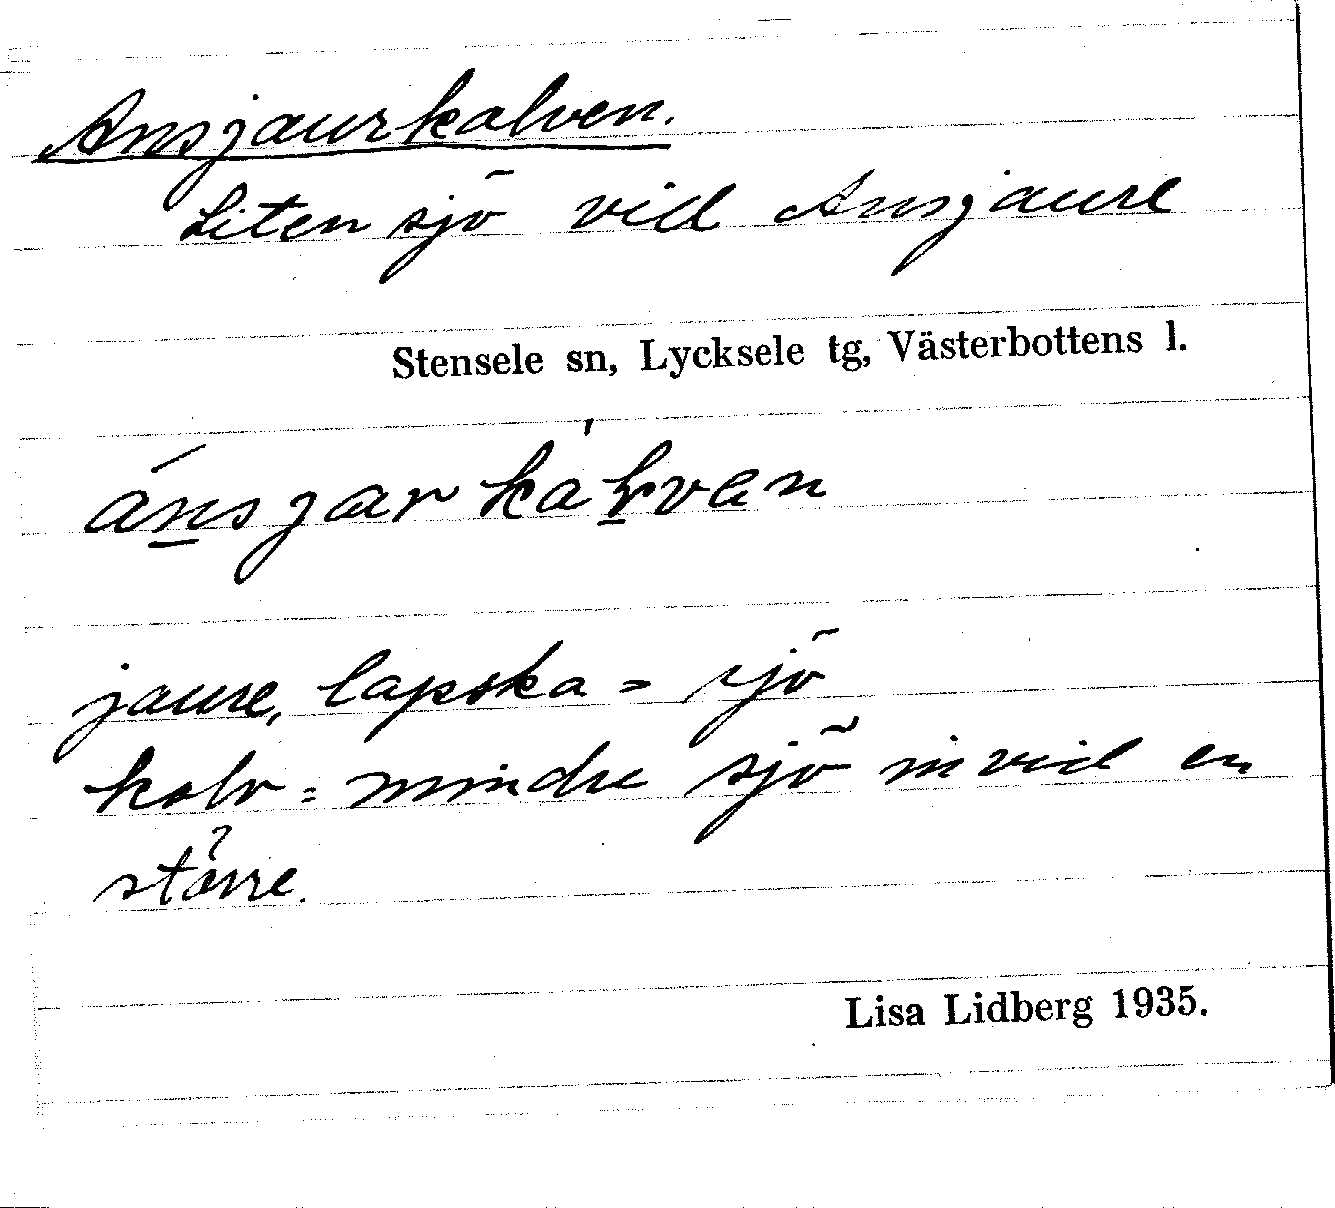 Ansjaurkalven.
Liten sjö vid Ansjaure
Stensele sn, Lycksele tg, Västerbottens l.
jaure, lapska = sjö
kalv = mindre sjö invid en
större.
Lisa Lidberg 1935.